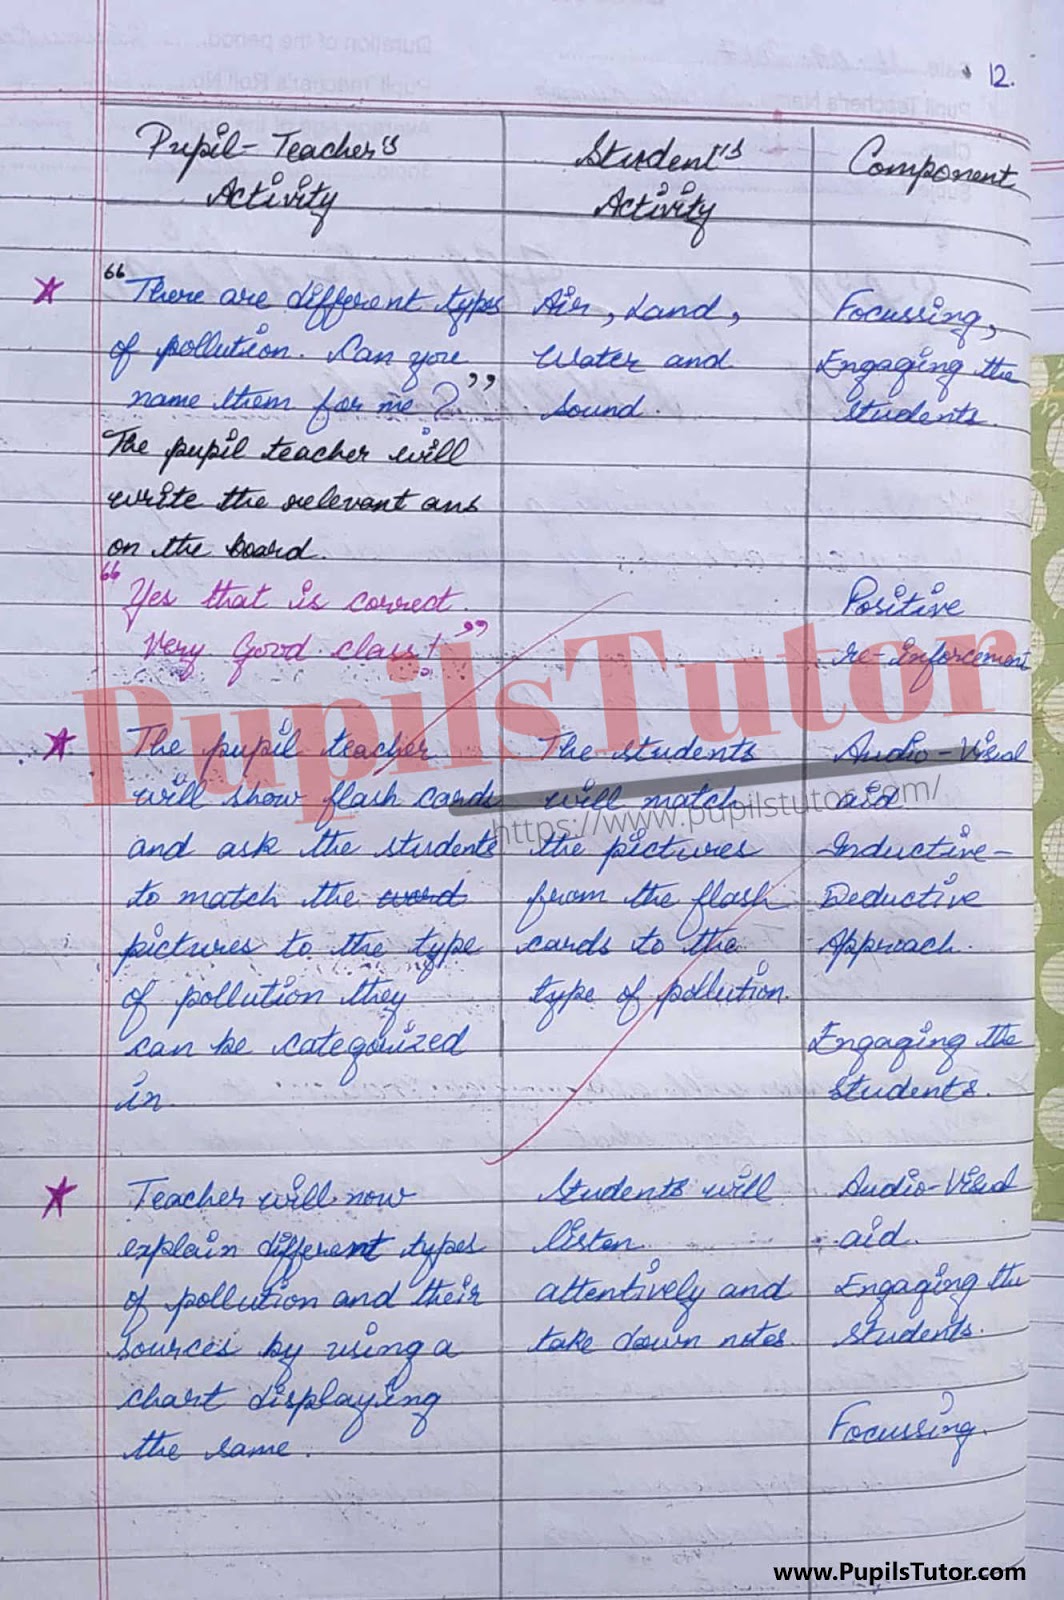 12.
Pupil-Teacher's
Activity
Student's
Activity
Component
"There are different types
of pollution. Can you
name them for me?"
The pupil teacher will
write the relevant ans
on the board.
"Yes that is correct.
Very Good class!"
Air, Land,
Water and
Sound.
Focussing,
Engaging the
students.
Positive
re-Inforcement
PupilsTutor
https://www.pupilstutor.com/
The pupil teacher
will show flash cards
and ask the students
to match the word
pictures to the type
of pollution they
can be categorized
in.
The students
will match
the pictures
from the flash
cards to the
type of pollution.
Audio-Visual
aid
Inductive-
Deductive
Approach.
Engaging the
students.
Teacher will now
explain different types
of pollution and their
sources by using a
chart displaying
the same.
Students will
listen
attentively and
take down notes.
Audio-Visual
aid.
Engaging the
students.
Focussing.
www.PupilsTutor.com